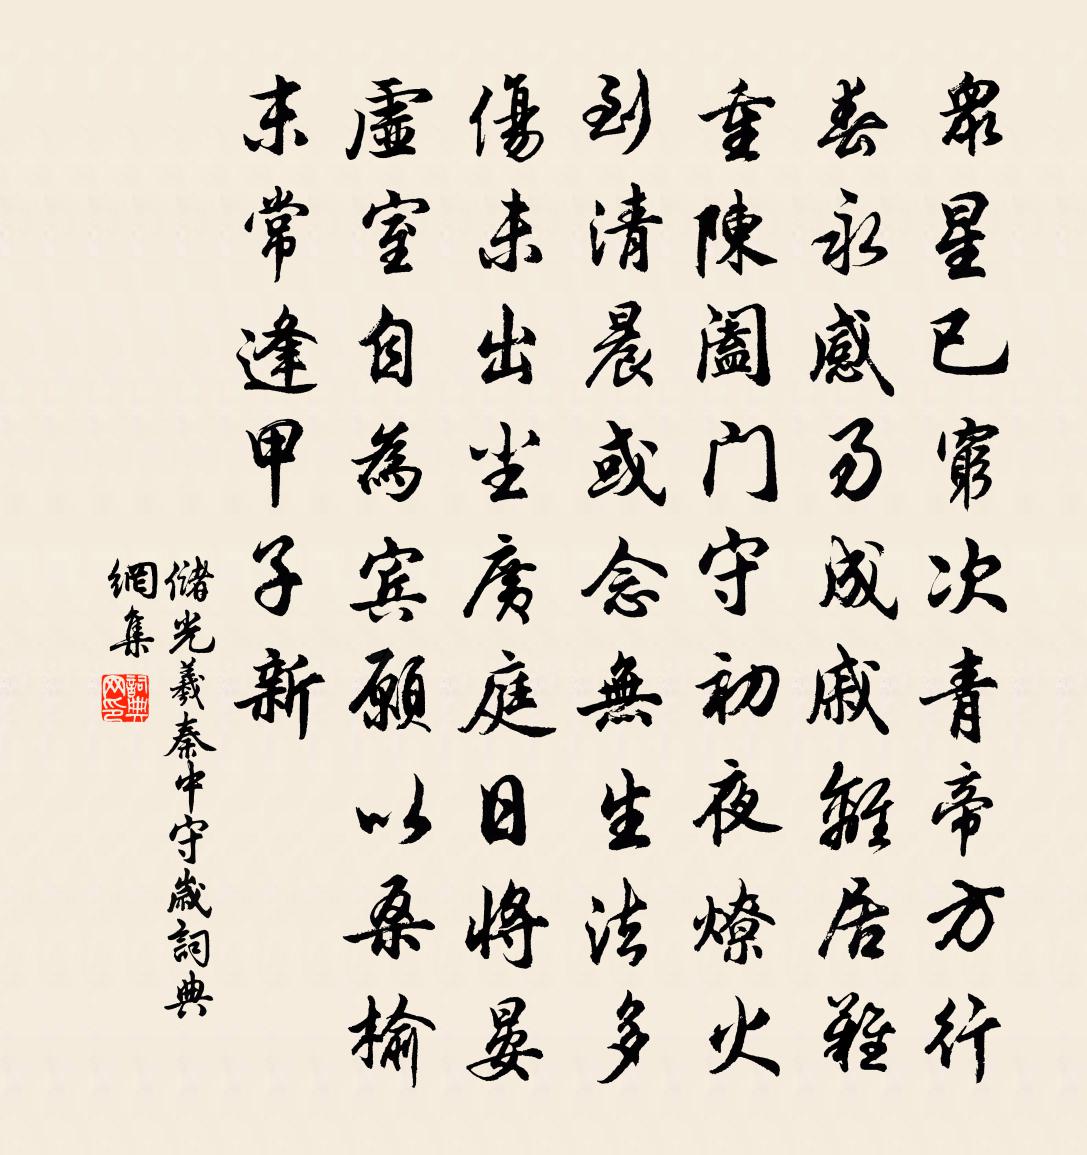 眾星已窮次青帝方行
春永感易成戚離居難
重陳闔门守初夜燎火
到清晨或念無生法多
傷未出尘廣庭日將晏
虛室自為宾願以桑榆
末常逢甲子新
儲光羲秦中守歲詞典
網集
詞典网印